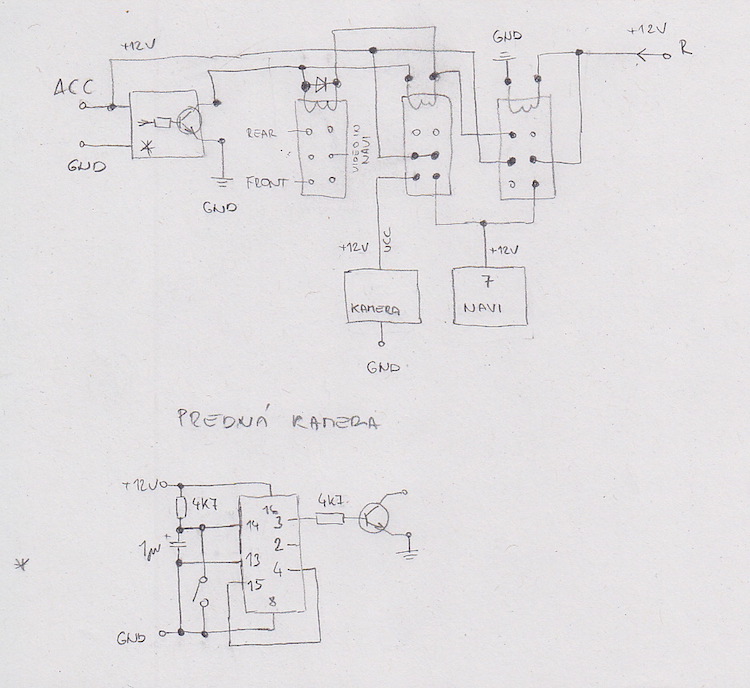 +12V
GND
+12V
R
ACC
GND
*
GND
REAR
FRONT
VIDEO IN
NAVI
+12V
UCC
+12V
KAMERA
7
NAVI
GND
PREDNÁ KAMERA
+12V
4K7
16
14
3
4K7
2
13
4
15
8
GND
*